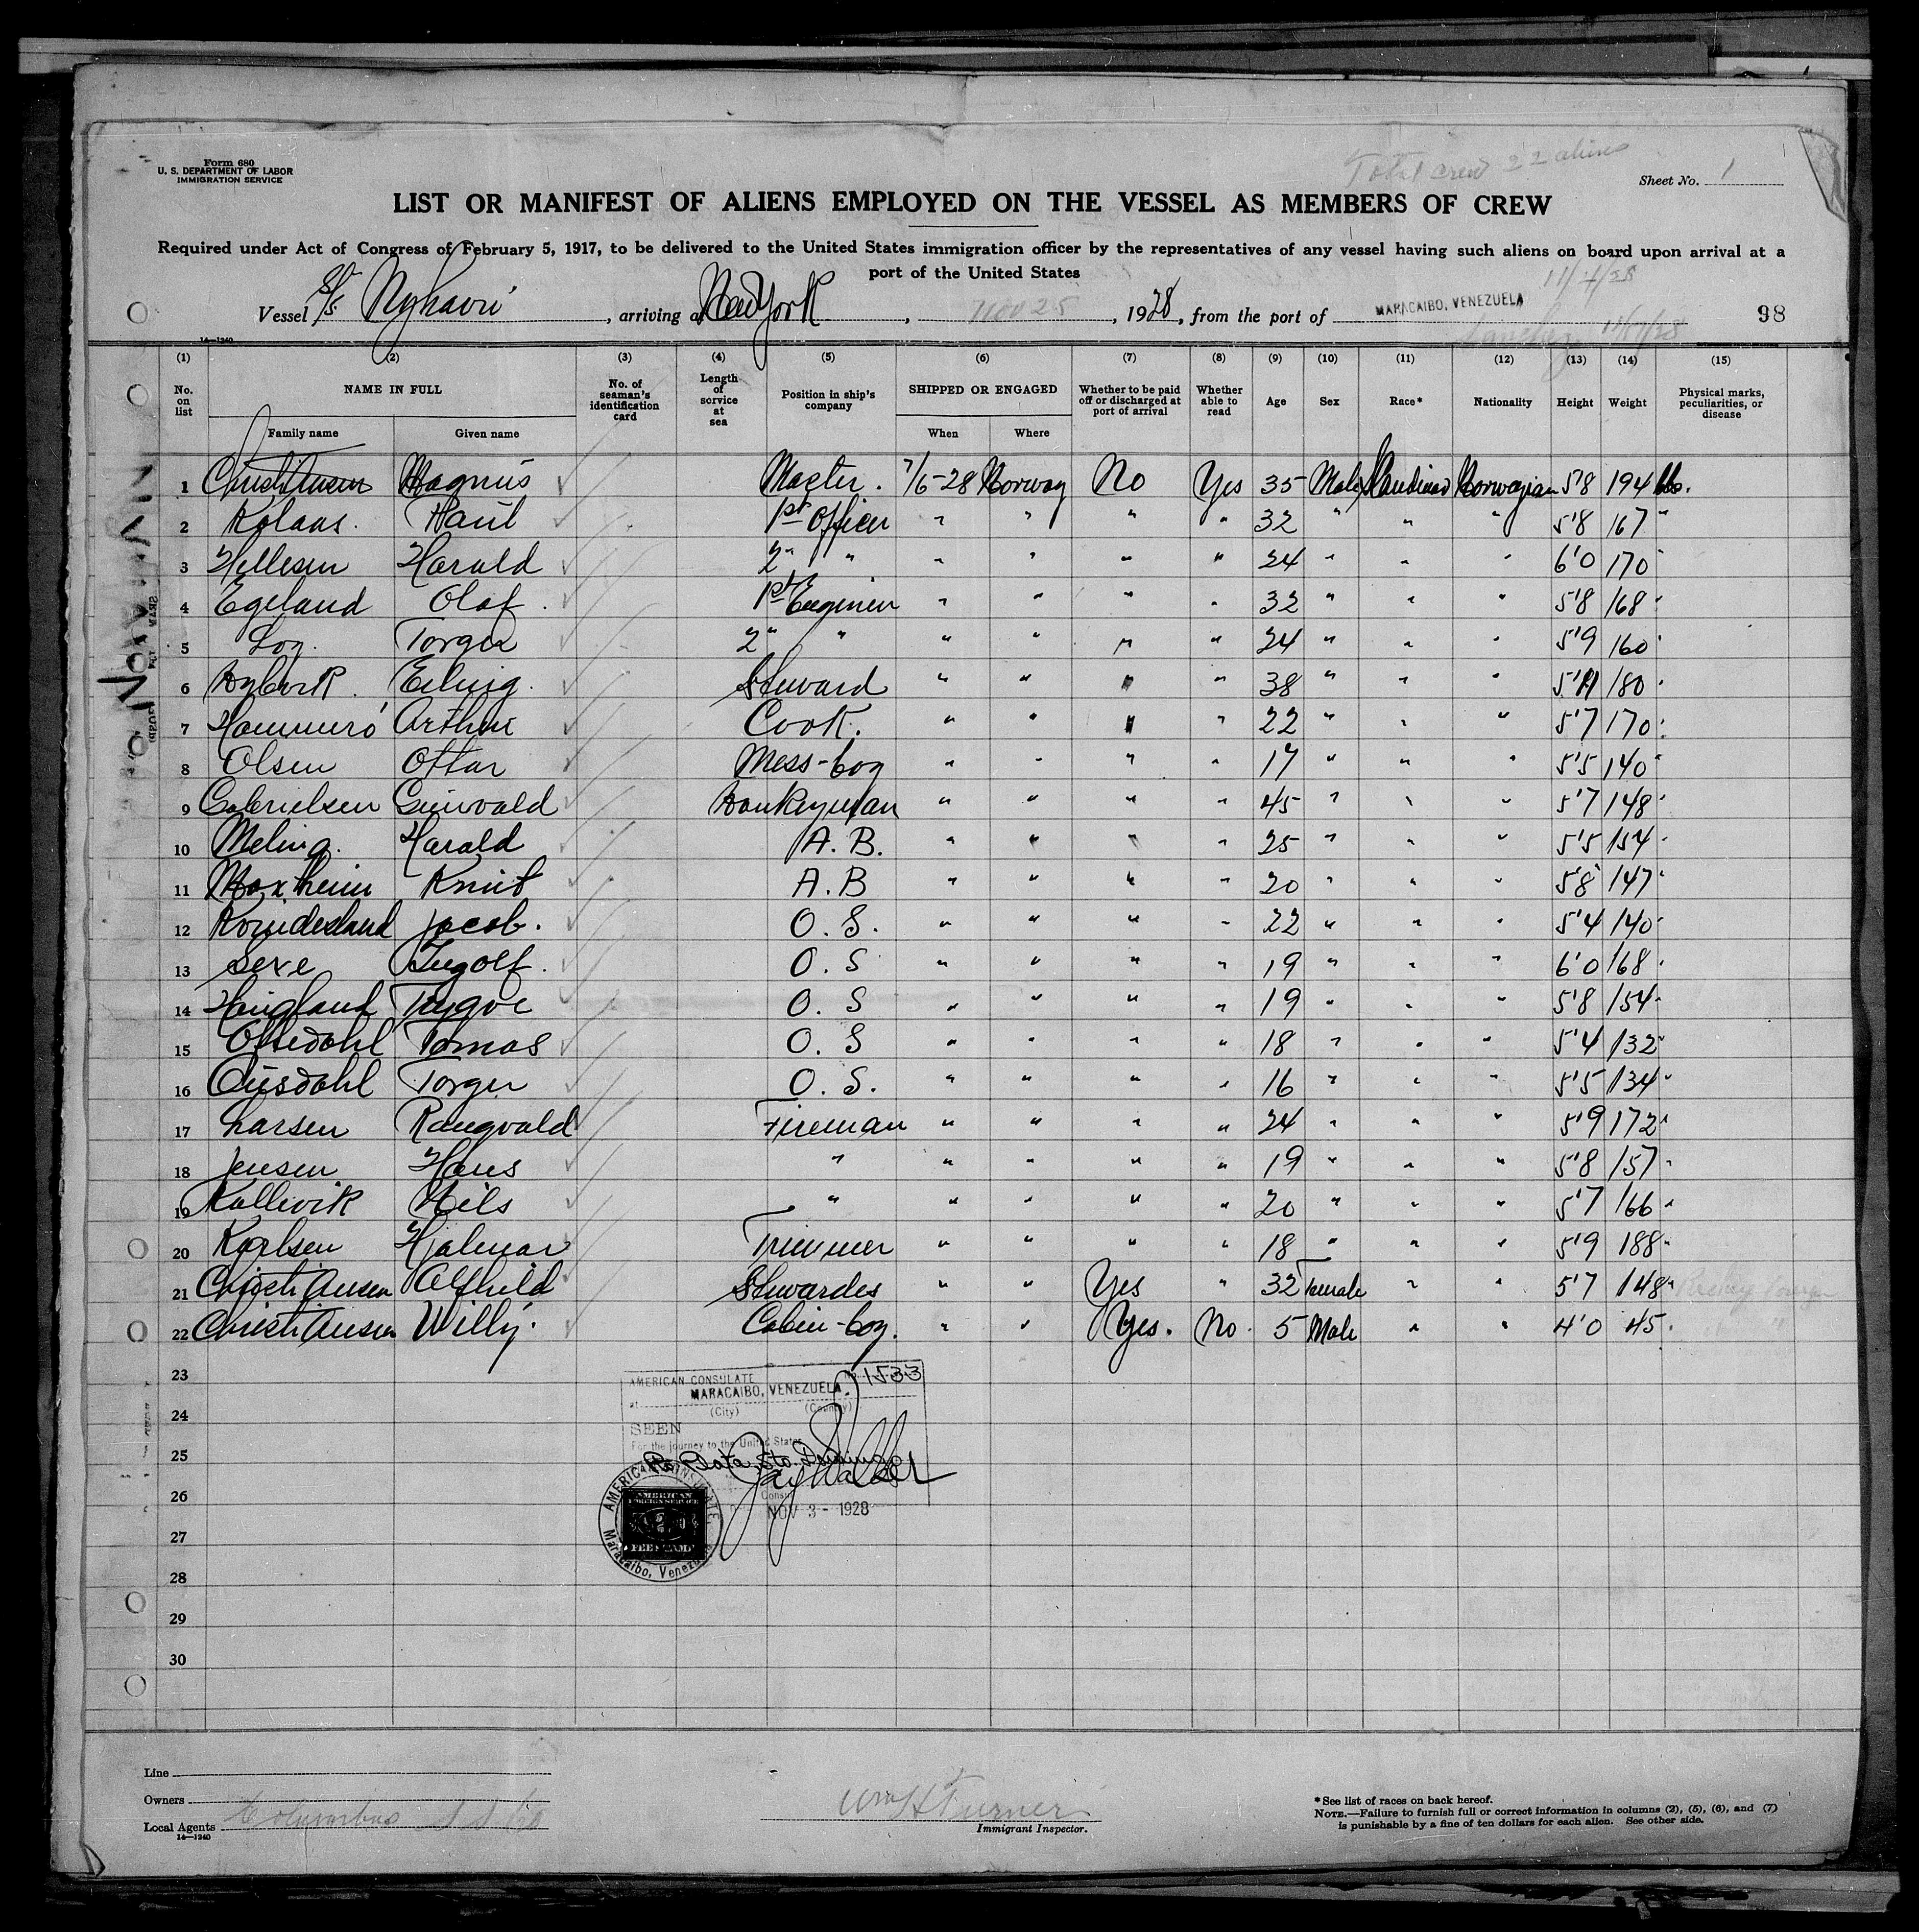 Form 680
U. S. DEPARTMENT OF LABOR
IMMIGRATION SERVICE
Total crew 22 aliens
Sheet No. 1
LIST OR MANIFEST OF ALIENS EMPLOYED ON THE VESSEL AS MEMBERS OF CREW
Required under Act of Congress of February 5, 1917, to be delivered to the United States immigration officer by the representatives of any vessel having such aliens on board upon arrival at a
port of the United States
Vessel S/S , arriving at New York , Nov 25 , 1928, from the port of MARACAIBO, VENEZUELA 98
14—1240
(1) (2) (3) (4) (5) (6) (7) (8) (9) (10) (11) (12) (13) (14) (15)
No. on list NAME IN FULL No. of seaman's identification card Length of service at sea Position in ship's company SHIPPED OR ENGAGED Whether to be paid off or discharged at port of arrival Whether able to read Age Sex Race* Nationality Height Weight Physical marks, peculiarities, or disease
Family name Given name When Where
1 Christiansen Magnus Master. 7/6-28 Norway No Yes 35 Male Norwegian 5'8 194 lbs.
2 Paul 1st Officer " " " " 32 " " " 5'8 167 "
3 Hellesen Harald 2" " " " " " 24 " " " 6'0 170 "
4 Egeland Olaf 1st Engineer " " " " 32 " " " 5'8 168 "
5 Torger 2" " " " " " 24 " " " 5'9 160 "
6 Erling Steward " " " " 38 " " " 5'11 180 "
7 Arthur Cook. " " " " 22 " " " 5'7 170 "
8 Olsen Ottar Mess-boy " " " " 17 " " " 5'5 140 "
9 Gabrielsen Donkeyman " " " " 45 " " " 5'7 148 "
10 Meling Harald A. B. " " " " 25 " " " 5'5 154 "
11 Knut A. B " " " " 20 " " " 5'8 147 "
12 Jacob. O. S. " " " " 22 " " " 5'4 140 "
13 Sexe Ingolf O. S " " " " 19 " " " 6'0 168 "
14 Haugland Trygve O. S " " " " 19 " " " 5'8 154 "
15 Tomas O. S " " " " 18 " " " 5'4 132 "
16 Ousdahl Torger O. S. " " " " 16 " " " 5'5 134 "
17 Larsen Rangvald Fireman " " " " 24 " " " 5'9 172 "
18 Jensen Hans " " " " " 19 " " " 5'8 157 "
19 Kallevik Nils " " " " " 20 " " " 5'7 166 "
20 Karlsen Hjalmar Trimmer " " " " 18 " " " 5'9 188 "
21 Christiansen Alfhild Stewardes " " Yes " 32 Female " " 5'7 148 "
22 Christiansen Willy Cabin-boy. " " Yes. No. 5 Male " " 4'0 45 "
23
24
25
26
27
28
29
30
AMERICAN CONSULATE 1533
at MARACAIBO, VENEZUELA.
(City) (Country)
SEEN
For the journey to the United States
Consul
NOV 3 - 1928
AMERICAN CONSULATE
AMERICAN
FOREIGN SERVICE
FEE STAMP
Maracaibo, Venezuela
Line
Owners
Local Agents Columbus
14—1240
Wm H Turner
Immigrant Inspector.
*See list of races on back hereof.
NOTE.—Failure to furnish full or correct information in columns (2), (5), (6), and (7)
is punishable by a fine of ten dollars for each alien. See other side.